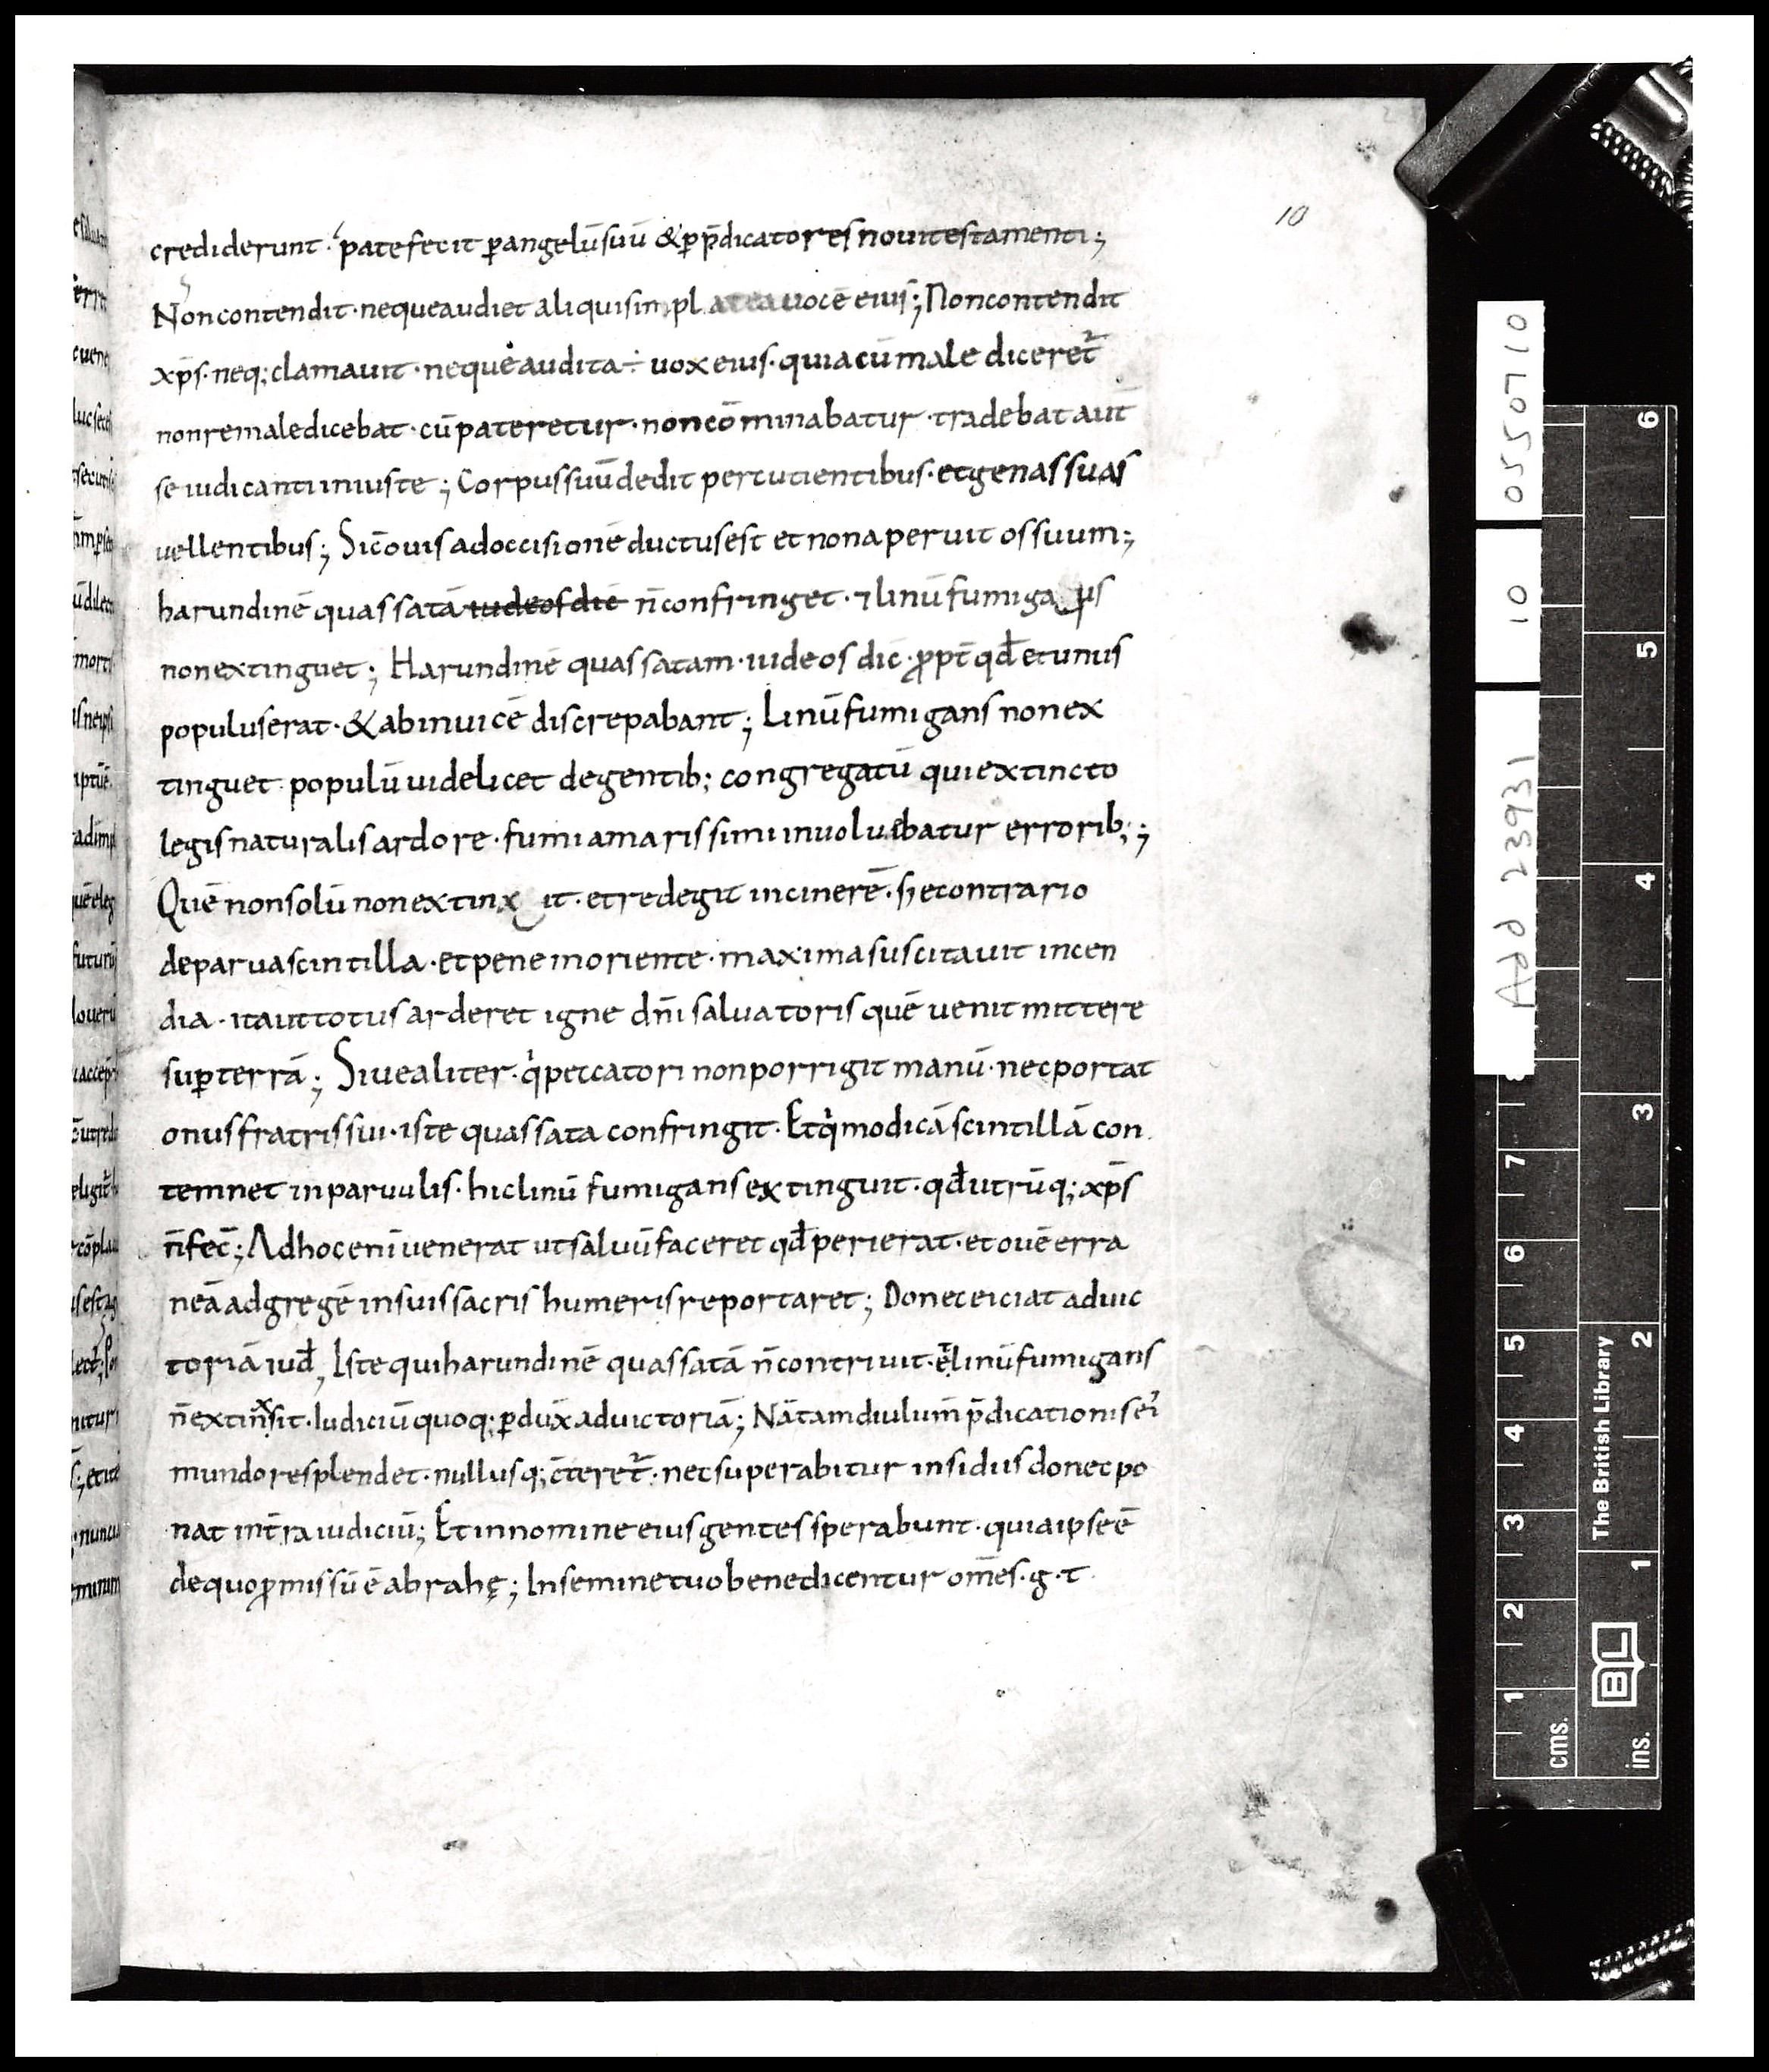 10
crediderunt · patefecit ꝑangelūsuū &ꝑp̄dicatores nouitestamenti;
Noncontendit · nequeaudiet aliquisinplateauocē eius; Noncontendit
xp̄s · neq; clamauit · nequeaudita÷ uoxeius · quiacūmale diceret̄
nonremaledicebat · cūpateretur · noncōminabatur · tradebat aut̄
se iudicantiiniuste; Corpussuūdedit percutientibus · etgenassuas
uellentibus; Sic̄ouisadoccisionē ductusest et nonaperuit ossuum;
harundinē quassatā iudeosdic̄ n̄confringet · ⁊linūfumigaNs
nonextinguet; Harundinē quassatam · iudeos dic̄ · ꝓpt̄ qd̄etunus
populuserat · &abinuicē discrepabant; Linūfumigans nonex
tinguet · populūuidelicet degentib; congregatū quiextincto
legisnaturalisardore · fumiamarissimiinuoluebatur errorib;;
Quēnonsolūnonextinx it · etredegit incinerē · s; econtrario
deparuascintilla · etpenemoriente · maximasuscitauit incen
dia · itauttotusarderet igne dn̄i saluatorisquē uenit mittere
suꝑterrā; Siuealiter · qͥpeccatori nonporrigit manū · necportat
onusfratrissui · iste quassata confringit · Etqͥmodicāscintillā con
temnet inparuulis · hiclinū fumigansextinguit · qd̄utrūq; xp̄s
n̄fec̄; Adhocenīuenerat utsaluūfaceret qd̄perierat · etouēerra
neāadgregē insuissacris humerisreportaret; Doneceiciat aduic
toriā iud̄, Iste quiharundinē quassatā n̄contriuit · et̄linūfumigans
n̄extin̄xsit · Iudiciūquoq; ꝑdux̄aduictoriā; Nātamdiulum̄ p̄dicationisei
mundoresplendet · nullusq; c̄teret̄ · necsuperabitur insidiis donecpo
nat int̄raiudiciū; Etinnomineeiusgentessperabunt · quiaipseē
dequoꝓmissū ē abrahę; Inseminetuobenedicentur om̄es · g · t
0550710
10
Add 23931
The British Library
BL
cms.
1 2 3 4 5 6 7
ins.
1 2 3 4 5 6